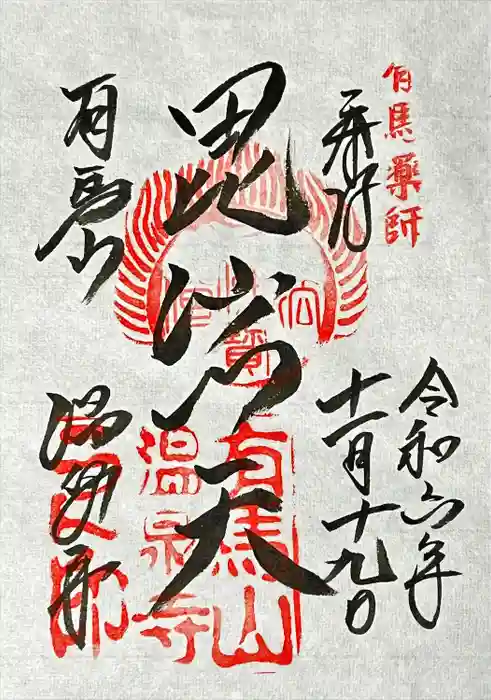 有馬薬師
奉拝
令和六年
十一月十九日
毘沙门天
有馬山
温泉寺
有馬山
温泉寺